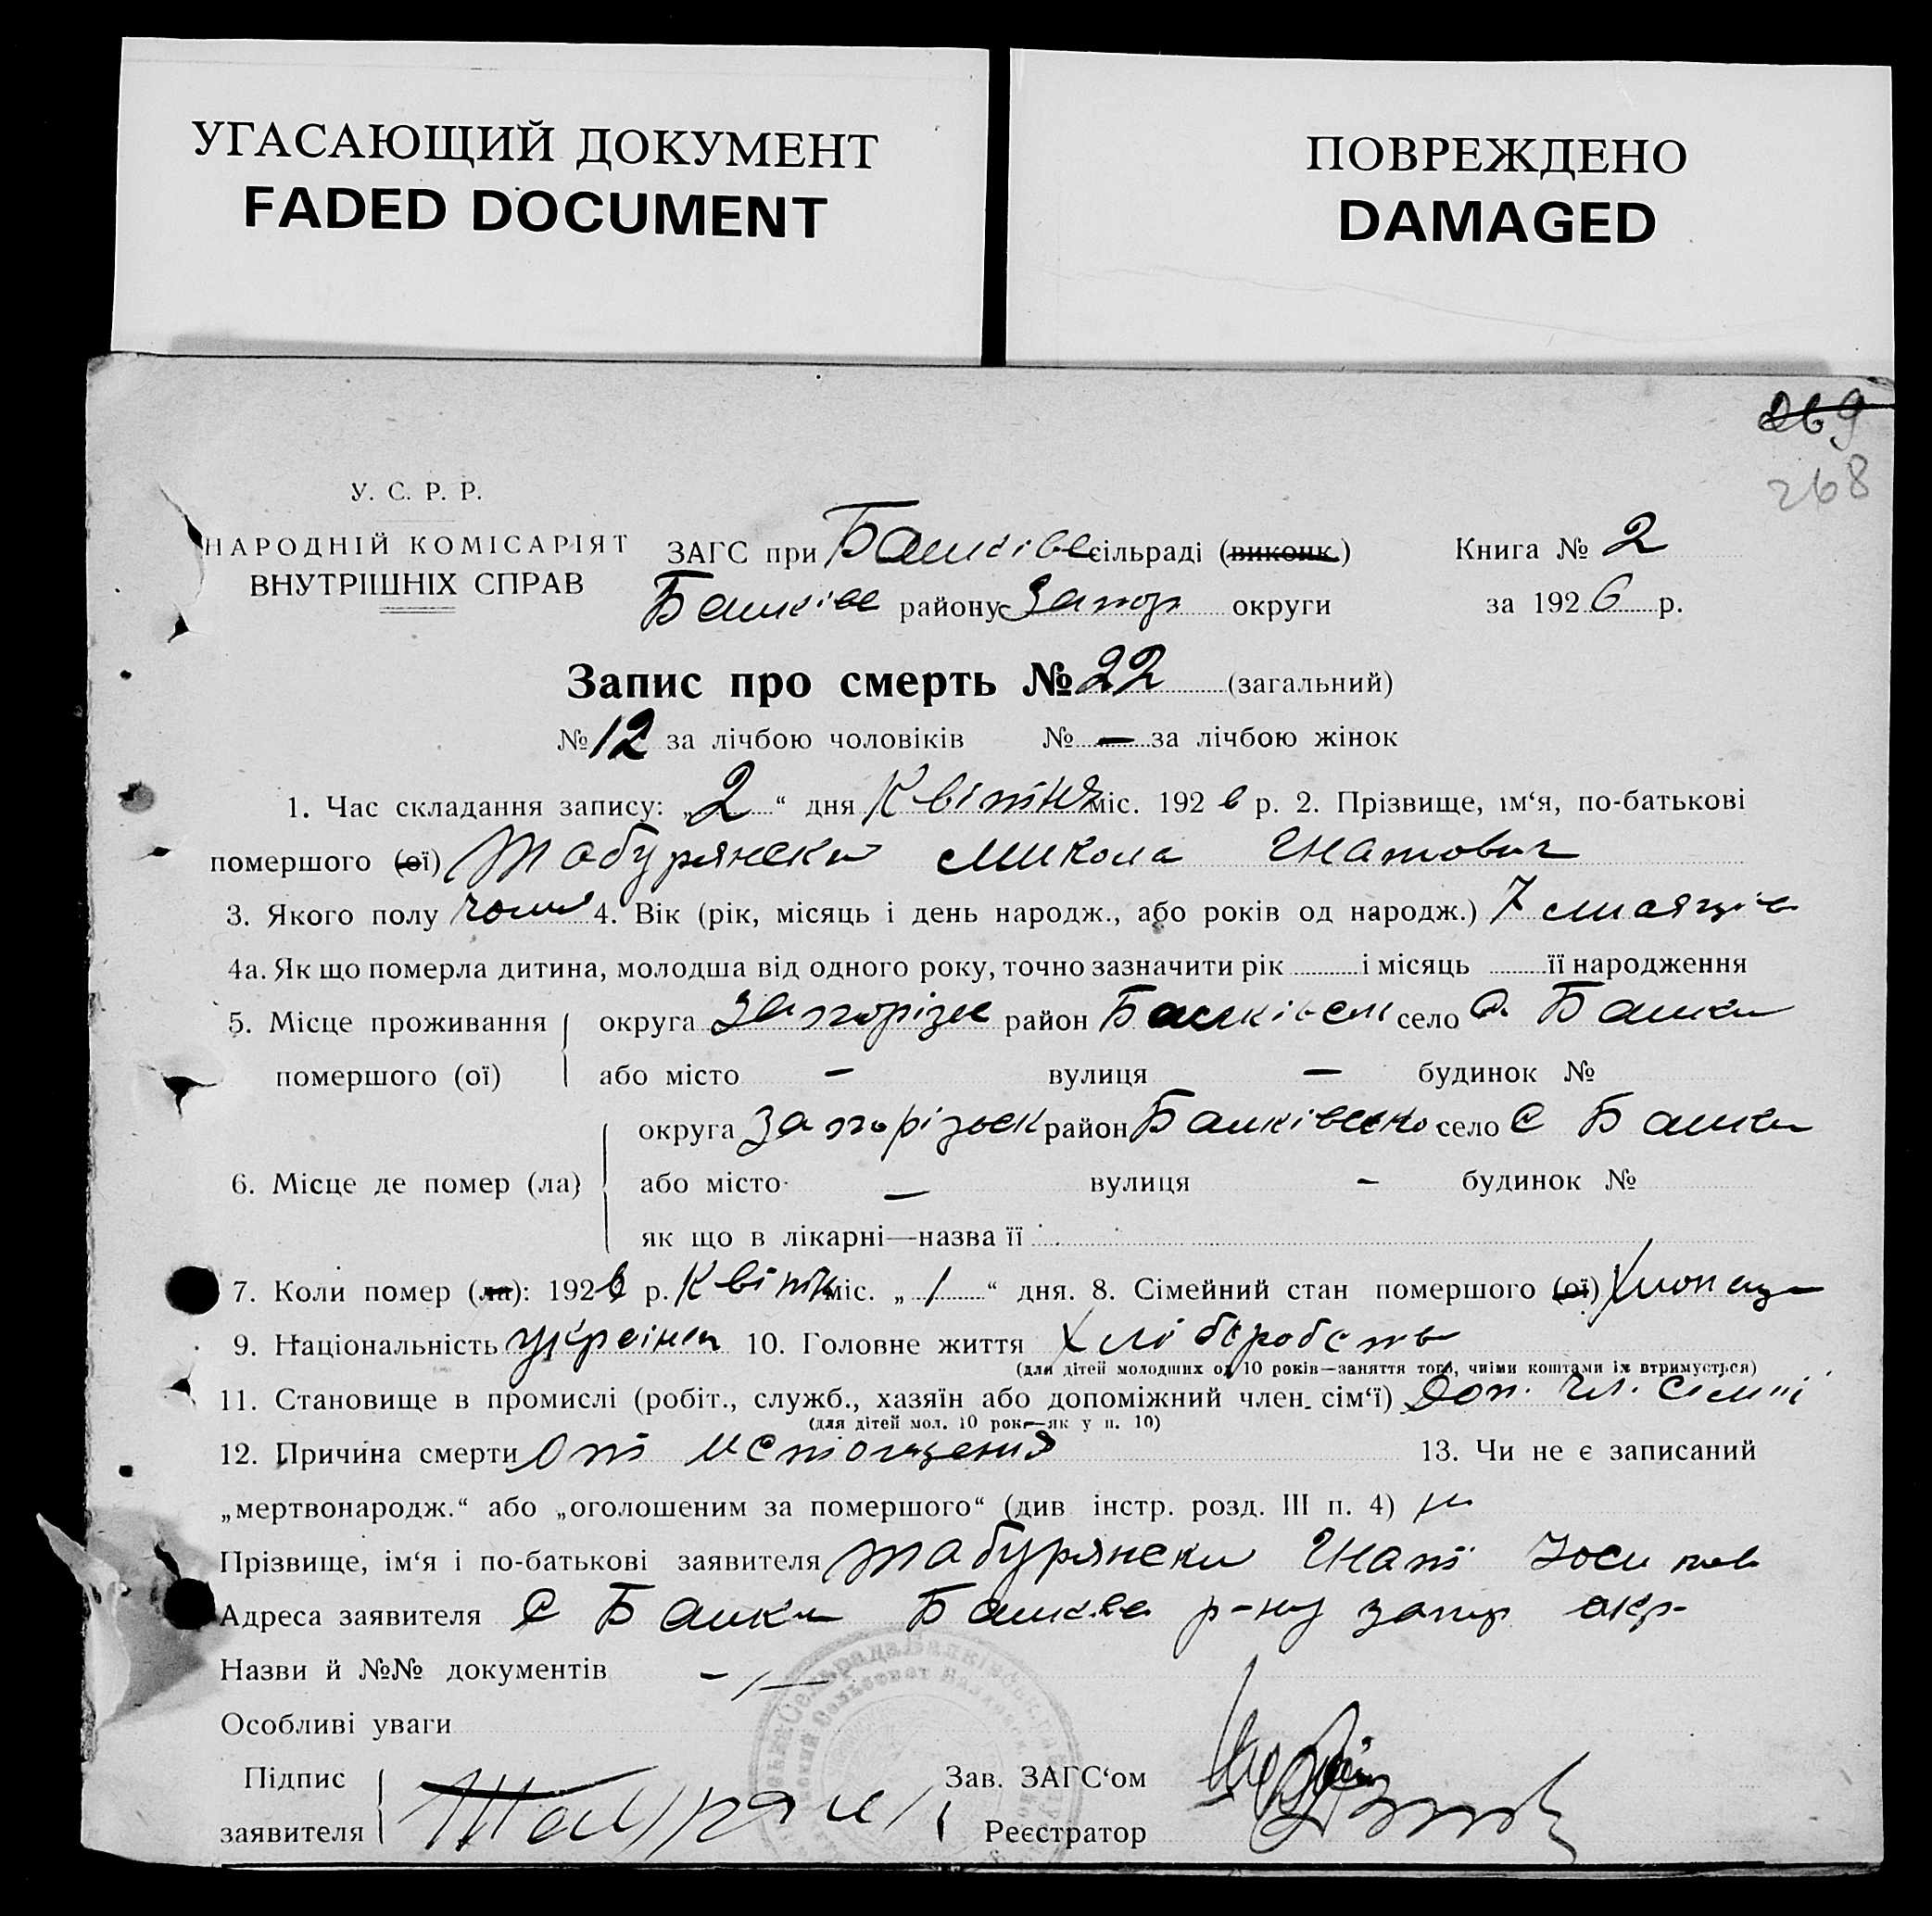 УГАСАЮЩИЙ ДОКУМЕНТ
FADED DOCUMENT
ПОВРЕЖДЕНО
DAMAGED
269
268
У. С. Р. Р.
НАРОДНІЙ КОМІСАРІЯТ
ВНУТРІШНІХ СПРАВ
ЗАГС при Балківс сільраді (виконк.)
Балківс району Запор округи
Книга № 2
за 1926 р.
Запис про смерть № 22 (загальний)
№ 12 за лічбою чоловіків № — за лічбою жінок
1. Час складання запису: „2“ дня Квітня міс. 1926 р. 2. Прізвище, ім‘я, по-батькові
помершого (ої) Табурянски Микола Гнатович
3. Якого полу 4. Вік (рік, місяць і день народж., або років од народж.) 7 мисяців
4а. Як що померла дитина, молодша від одного року, точно зазначити рік і місяць її народження
5. Місце проживання округа Запоріз район Балківск село с. Балки
помершого (ої) або місто — вулиця — будинок №
округа Запорізьск район Балківско село с Балки
6. Місце де помер (ла) або місто — вулиця - будинок №
як що в лікарні—назва її
7. Коли помер (ла): 1926 р. Квітн міс. „1“ дня. 8. Сімейний стан помершого (ої) Хлопець
9. Національність україн 10. Головне життя Хліборобств
(для дітей молодших од 10 років—заняття того, чиїми коштами їх втримується)
11. Становище в промислі (робіт., служб., хазяїн або допоміжний член. сім‘ї) Доп. чл. сімї
(для дітей мол. 10 рок—як у п. 10)
12. Причина смерти От истощения 13. Чи не є записаний
„мертвонародж.“ або „оголошеним за помершого“ (див інстр. розд. III п. 4)
Прізвище, ім‘я і по-батькові заявителя Табурянски Гнат Йосипов
Адреса заявителя с Балки Балківс р-ну запор окр-
Назви й №№ документів -/-
Особливі уваги
Підпис
заявителя
Зав. ЗАГС‘ом
Реєстратор